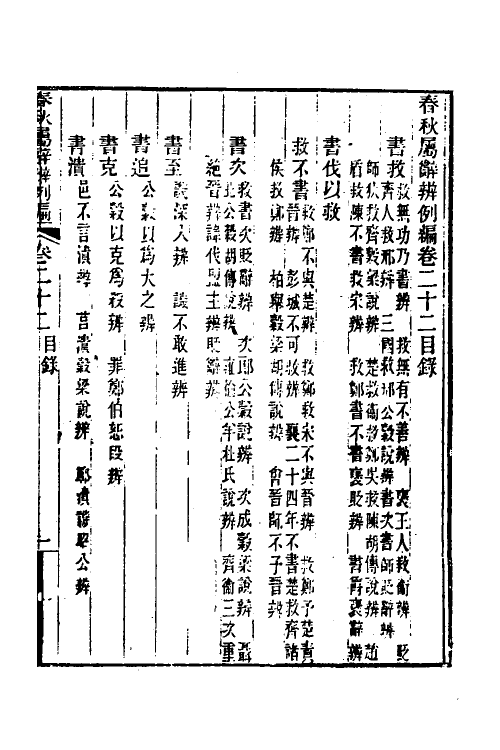 春秋屬辭辨例編卷二十二目錄
書救 救無功乃書辨 救無有不善辨 褒王人救衛辨 貶
齊人救邢辨 三國救邢公穀說辨 書次書師貶辭辨
師伙救齊穀梁說辨 楚救衛救鄭吳救陳胡傳說辨 趙
盾救陳不書救宋辨 救鄭書不書褒貶辨 書皆褒辭辨
書伐以救
救不書 救鄭不與楚辨 救鄭救宋不與晉辨 救鄭予楚責
晉辨 彭城不可救辨 襄二十四年不書楚救齊諸
侯救鄭辨 柏舉穀梁胡傳說辨 會晉師不子晉辨
書次 救書次貶辭辨 次郎公穀說辨 次成穀梁說辨 聶
北公穀胡傳說辨 公羊杜氏說辨 齊衛三次重
絕晉辨 諱伐盟主辨 貶辭辨
書至 譏深入辨 譏不敢進辨
書追 公穀以為大之辨
書克 公穀以克為殺辨 罪鄭伯恕段辨
書潰 邑不言潰辨 莒潰穀梁說辨 鄆潰譏昭公辨
春秋屬辭辨例編 卷二十二目錄 一